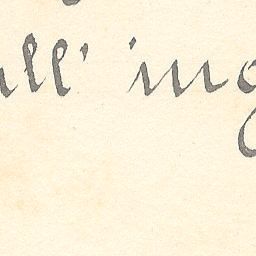 all' ing